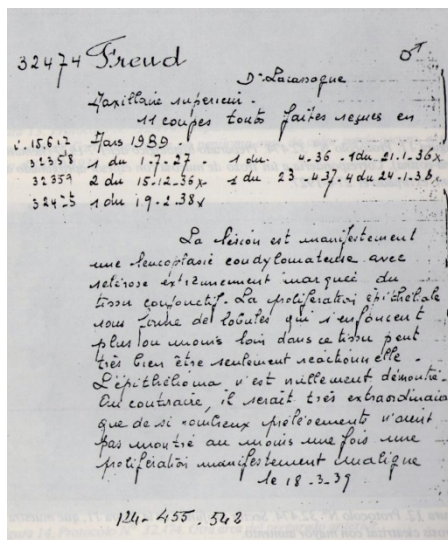 32474 Freud ♂
Dr Lacassagne
Maxillaire superieur.
11 coupes toutes faites reçues en
Mars 1939
32358 1 du 1-7-27 - 1 du 4-36 - 1 du 21.1.36x
32359 2 du 15-12-36x - 1 du 23-4-37. 4 du 24-1-38x
1 du 19-2-38x
La lésion est manifestement
une leucoplasie condylomateuse avec
sclérose extrêmement marquée du
tissu conjonctif. La prolifération épithéliale
sous forme de lobules qui s'enfoncent
plus ou moins loin dans ce tissu peut
très bien être seulement réactionnelle.
L'épithélioma n'est nullement démontré.
Au contraire, il serait très extraordinaire
que de si nombreux prélèvements n'aient
pas montré au moins une fois une
prolifération manifestement maligne
le 18-3-39
124-455-542